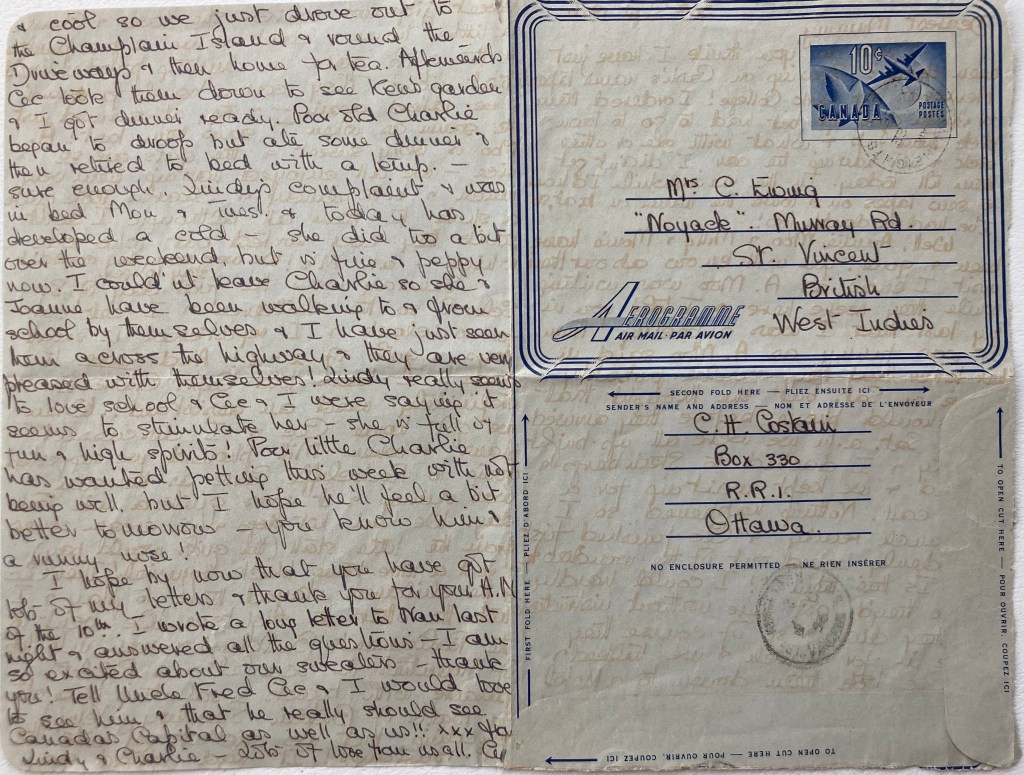 & cool so we just drove out to
the Champlain Island & round the
Driveways & then home for tea. Afterwards
Cec took them down to see Kens garden
& I got dinner ready. Poor old Charlie
began to droop but ate some dinner &
then retired to bed with a temp. –
sure enough, Lindy's complaint & was
in bed Mon & Tues. & today has
developed a cold – she did too a bit
over the weekend but is fine & peppy
now. I could'nt leave Charlie so she &
Joanne have been walking to & from
school by themselves & I have just seen
them across the highway & they are very
pleased with themselves! Lindy really seems
to love school & Cec & I were saying it
seems to stimulate her – she is full of
fun & high spirits! Poor little Charlie
has wanted petting this week with not
being well, but I hope he'll feel a bit
better tomorrow – you know him &
a runny nose!
I hope by now that you have got
lots of my letters & thank you for your A.M
of the 10th. I wrote a long letter to Nan last
night & answered all the questions – I am
so excited about our sweaters – thank
you! Tell Uncle Fred Cec & I would love
to see him & that he really should see
Canadas Capital as well as us!! xxx
Lindy & Charlie – Lots of love from us all.
10¢
CANADA
POSTAGE
POSTES
Mrs C. Ewing
"Noyack". Murray Rd.
St. Vincent
British
West Indies
AEROGRAMME
AIR MAIL · PAR AVION
SECOND FOLD HERE — PLIEZ ENSUITE ICI
SENDER'S NAME AND ADDRESS — NOM ET ADRESSE DE L'ENVOYEUR
C. H Costain
Box 330
R.R.1.
Ottawa.
NO ENCLOSURE PERMITTED — NE RIEN INSÉRER
FIRST FOLD HERE — PLIEZ D'ABORD ICI
TO OPEN CUT HERE — POUR OUVRIR, COUPEZ ICI
TO OPEN CUT HERE — POUR OUVRIR, COUPEZ ICI